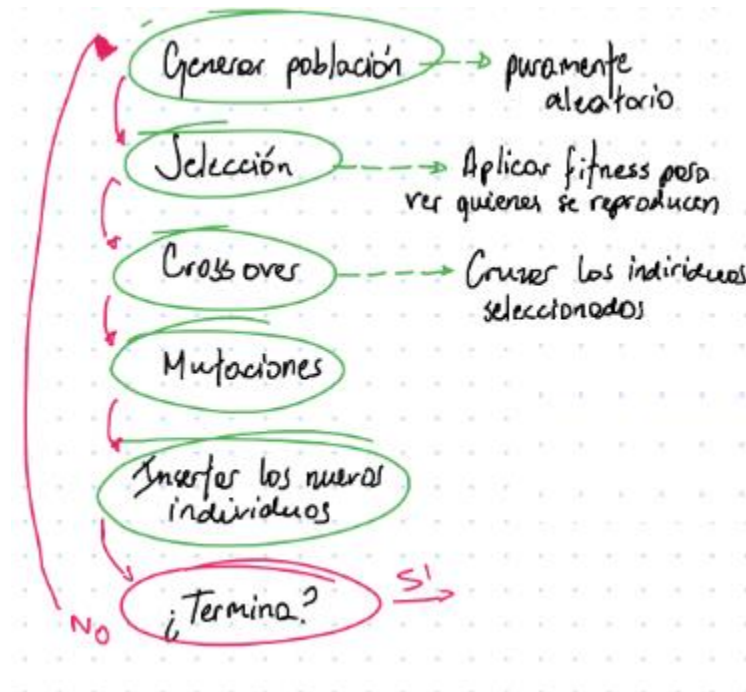 Generar población
puramente
aleatorio
Selección
Aplicar fitness para
ver quienes se reproducen
Cross over
Cruzar los individuos
seleccionados
Mutaciones
Insertar los nuevos
individuos
¿Termina?
SI
NO